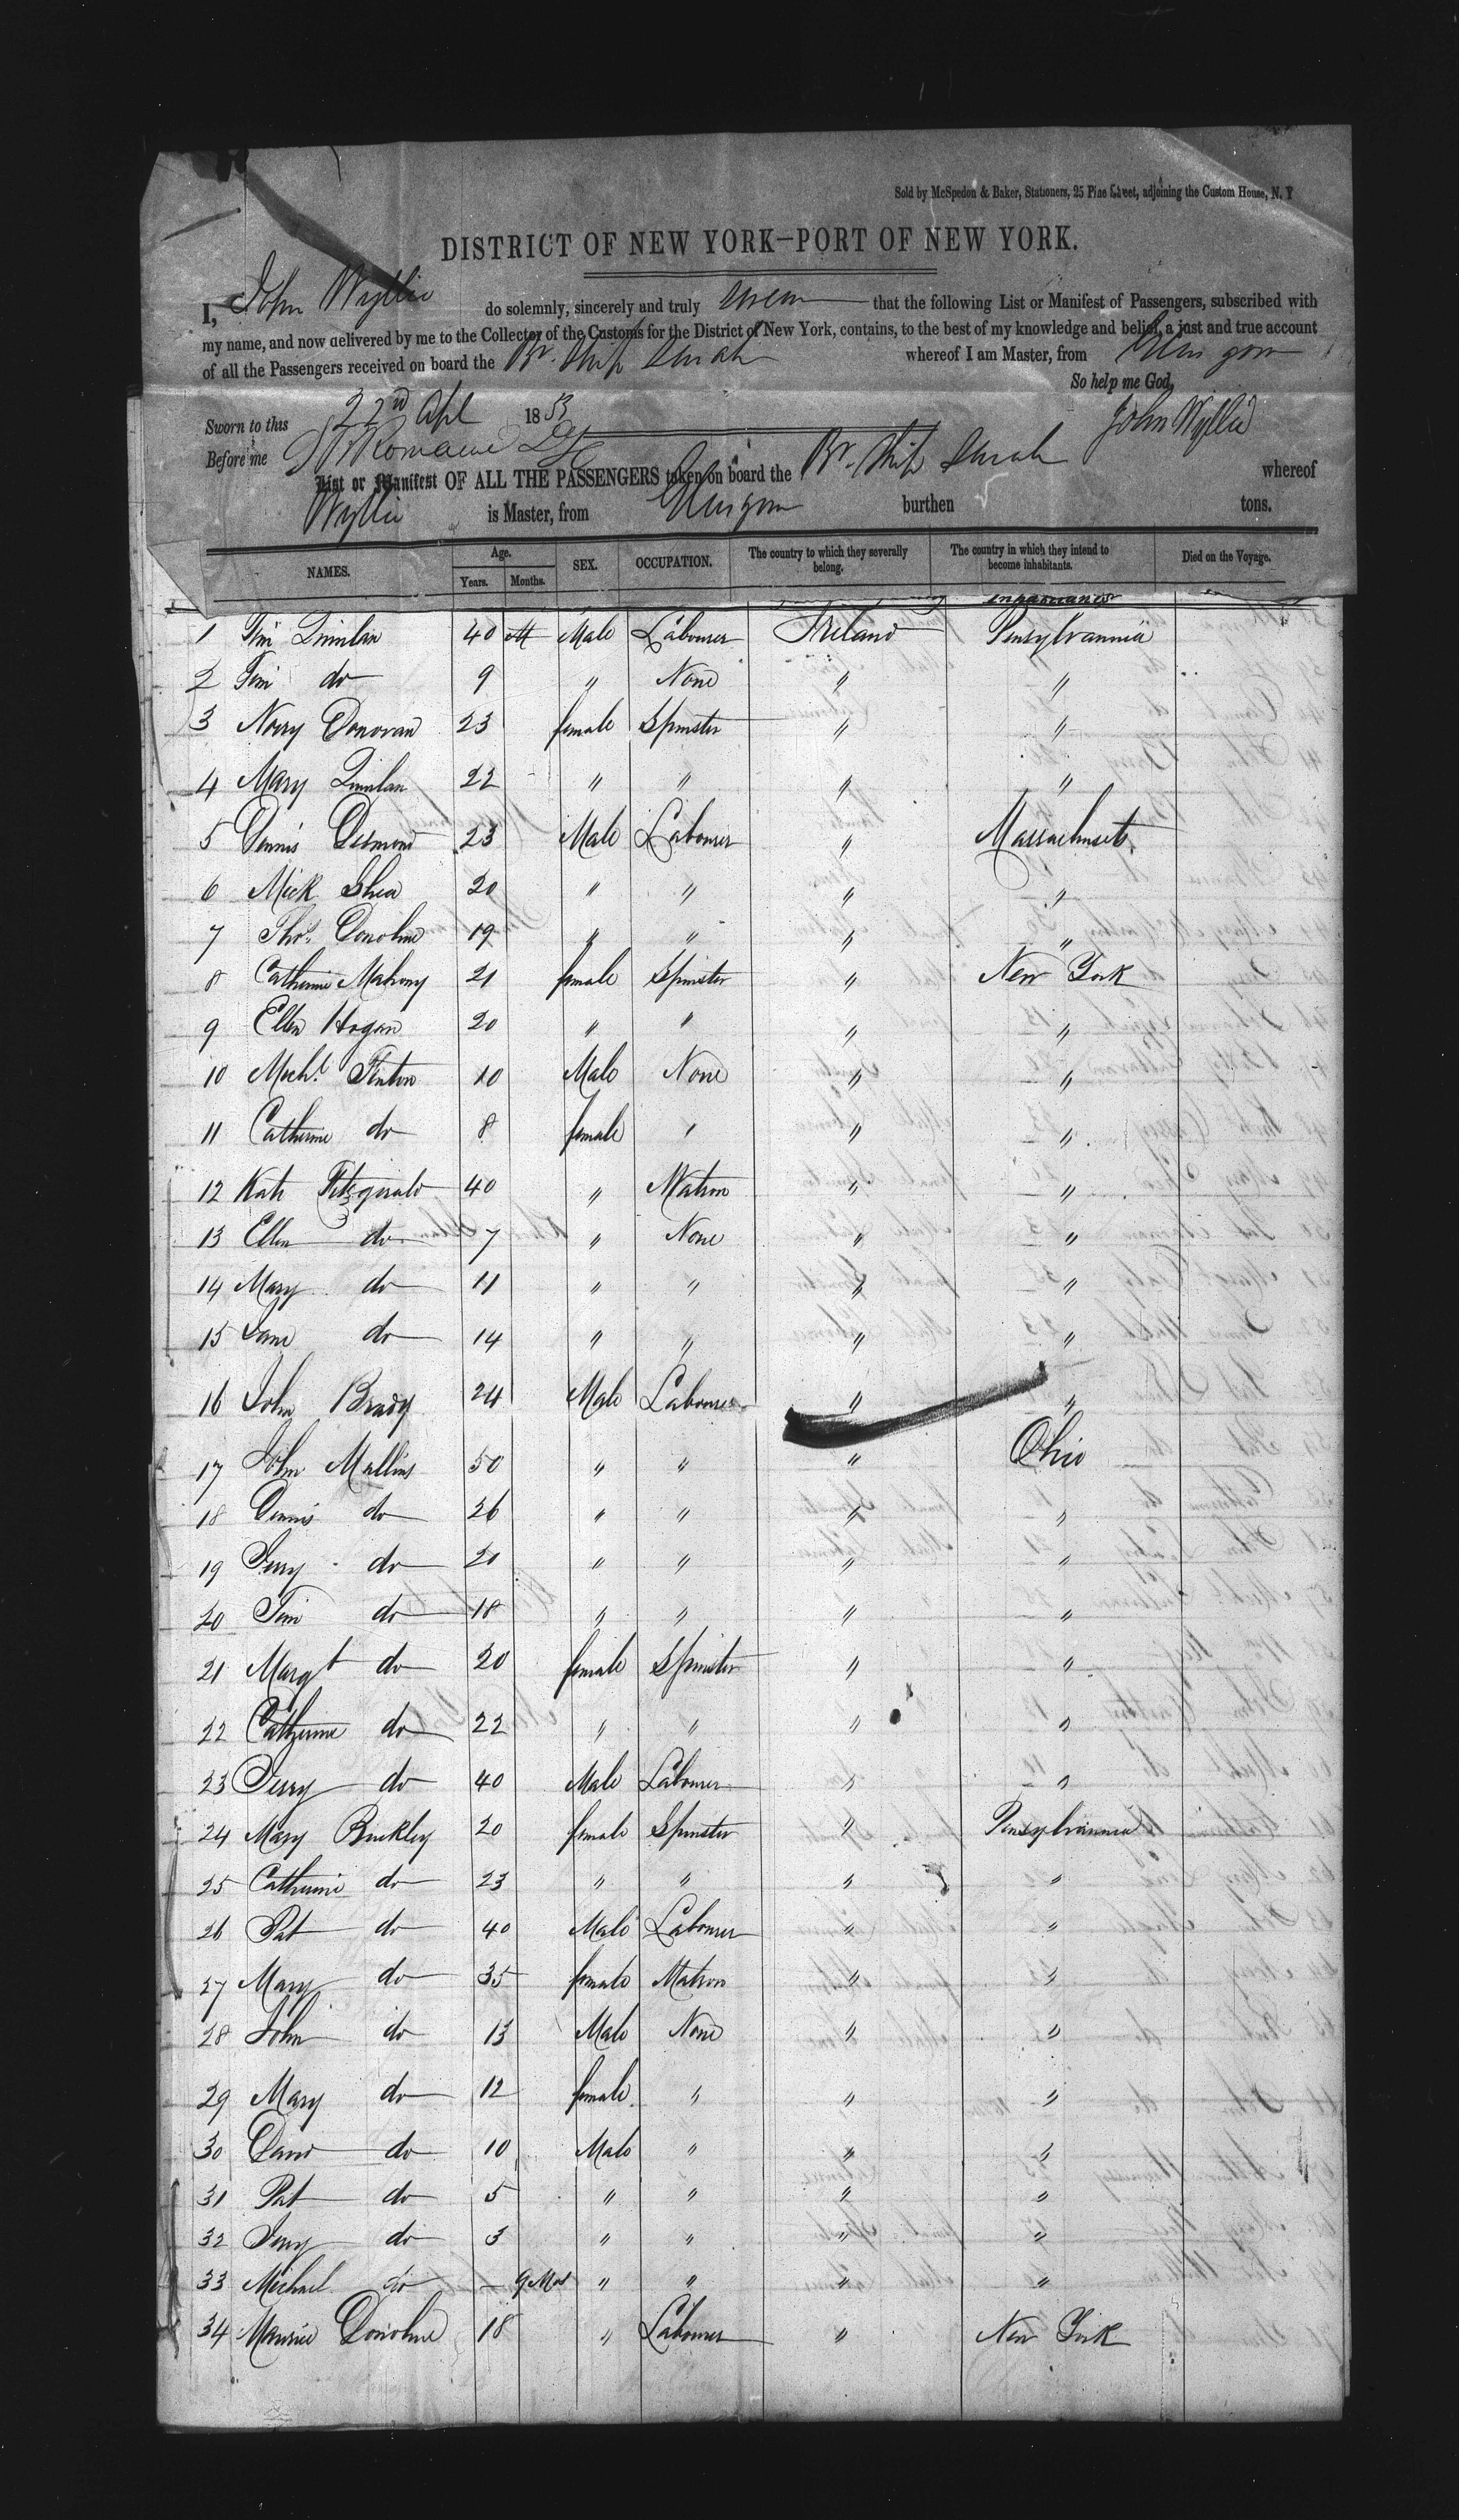 Sold by McSpedon & Baker, Stationers, 25 Pine Street, adjoining the Custom House, N. Y
DISTRICT OF NEW YORK—PORT OF NEW YORK.
I, John Wyllie do solemnly, sincerely and truly swear that the following List or Manifest of Passengers, subscribed with
my name, and now delivered by me to the Collector of the Customs for the District of New York, contains, to the best of my knowledge and belief, a just and true account
of all the Passengers received on board the Br. Ship Sarah whereof I am Master, from Glasgow
So help me God,
Sworn to this 22nd Apl 1853 John Wyllie
Before me Romaine
List or Manifest OF ALL THE PASSENGERS taken on board the Br. Ship Sarah whereof
Wyllie is Master, from Glasgow burthen tons.
NAMES. Age. Years. Months. SEX. OCCUPATION. The country to which they severally belong. The country in which they intend to become inhabitants. Died on the Voyage.
inhabitants
1 Tim Quinlan 40 M Male Labourer Ireland Pensylvannia
2 Tim do 9 " None " "
3 Norry Donovan 23 female Spinster " "
4 Mary Quinlan 22 " " " "
5 Dennis Desmond 23 Male Labourer " Massachusets
6 Mick Shea 20 " " " "
7 Thos. Donohue 19 " " " "
8 Catherine Mahony 21 female Spinster " New York
9 Ellen Hogan 20 " " " "
10 Michl. Finton 10 Male None " "
11 Catherine do 8 female " " "
12 Kate Fitzgerald 40 " Matron " "
13 Ellen do 7 " None " "
14 Mary do 11 " " " "
15 Jane do 14 " " " "
16 John Brady 24 Male Labourer " "
17 John Mullins 50 " " " Ohio
18 Dennis do 26 " " " "
19 Jerry do 20 " " " "
20 Tim do 18 " " " "
21 Margt do 20 female Spinster " "
22 Catherine do 22 " " " "
23 Jerry do 40 Male Labourer " "
24 Mary Buckley 20 female Spinster " Pensylvannia
25 Catherine do 23 " " " "
26 Pat do 40 Male Labourer " "
27 Mary do 35 female Matron " "
28 John do 13 Male None " "
29 Mary do 12 female " " "
30 David do 10 Male " " "
31 Pat do 5 " " " "
32 Jerry do 3 " " " "
33 Michael do — 9 Mos " " " "
34 Maurice Donohue 18 " Labourer " New York